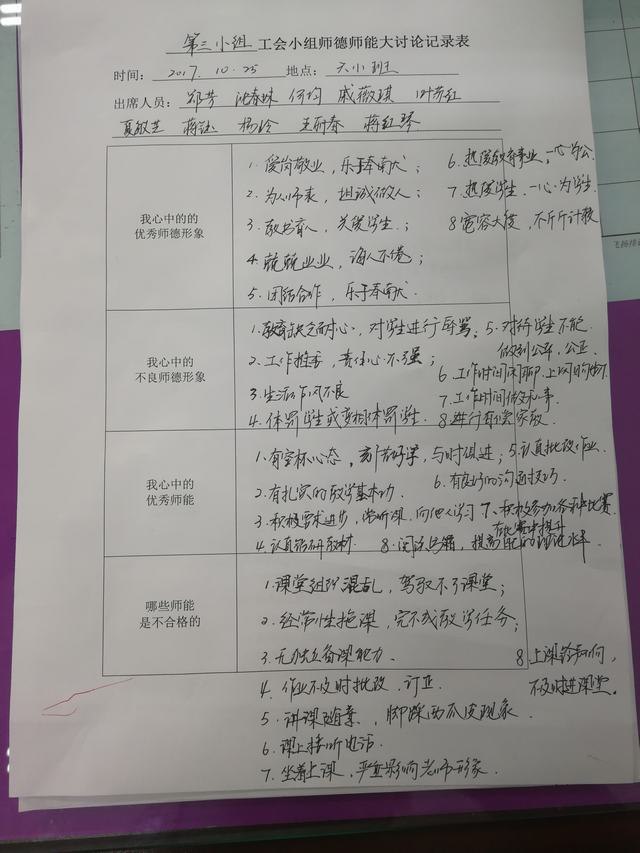 第三小组 工会小组师德师能大讨论记录表
时间：2017.10.25 地点：大小班
出席人员：郑芳 沈春妹 何均 戚薇琪 叶苏红
夏敏芝 蒋钰 杨玲 蒋红琴
我心中的的
优秀师德形象
1.爱岗敬业，乐于奉献；
2.为人师表，坦诚做人；
3.教书育人，关爱学生；
4.兢兢业业，诲人不倦；
5.团结合作，乐于奉献
6.热爱教育事业，一心为公
7.热爱学生，一心为学生
8宽容大度，不斤斤计较
我心中的
不良师德形象
1.教育缺乏耐心，对学生进行辱骂；
2.工作推委，责任心不强；
3.生活作风不良
4.体罚学生或变相体罚学生.
5.对待学生不能
做到公平，公正
6.工作时间闲聊.上网购物
7.工作时间做私事
8进行有偿家教
我心中的
优秀师能
1.有空杯心态，刻苦好学，与时俱进；
2.有扎实的教学基本功
3.积极要求进步，常听课，向他人学习
4.认真钻研教材
5.认真批改作业
6.有良好的沟通技巧
7、积极参加各种比赛
在比赛中提升
8.阅读书籍，提高自己的理论水平
哪些师能
是不合格的
1.课堂组织混乱，驾驭不了课堂；
2.经常性拖课，完不成教学任务；
3.无独立备课能力.
4.作业不及时批改、订正
5.讲课随意、脚踩西瓜皮现象
6.课上接听电话
7.坐着上课，严重影响老师形象.
8上课铃声响，
不及时进课堂.